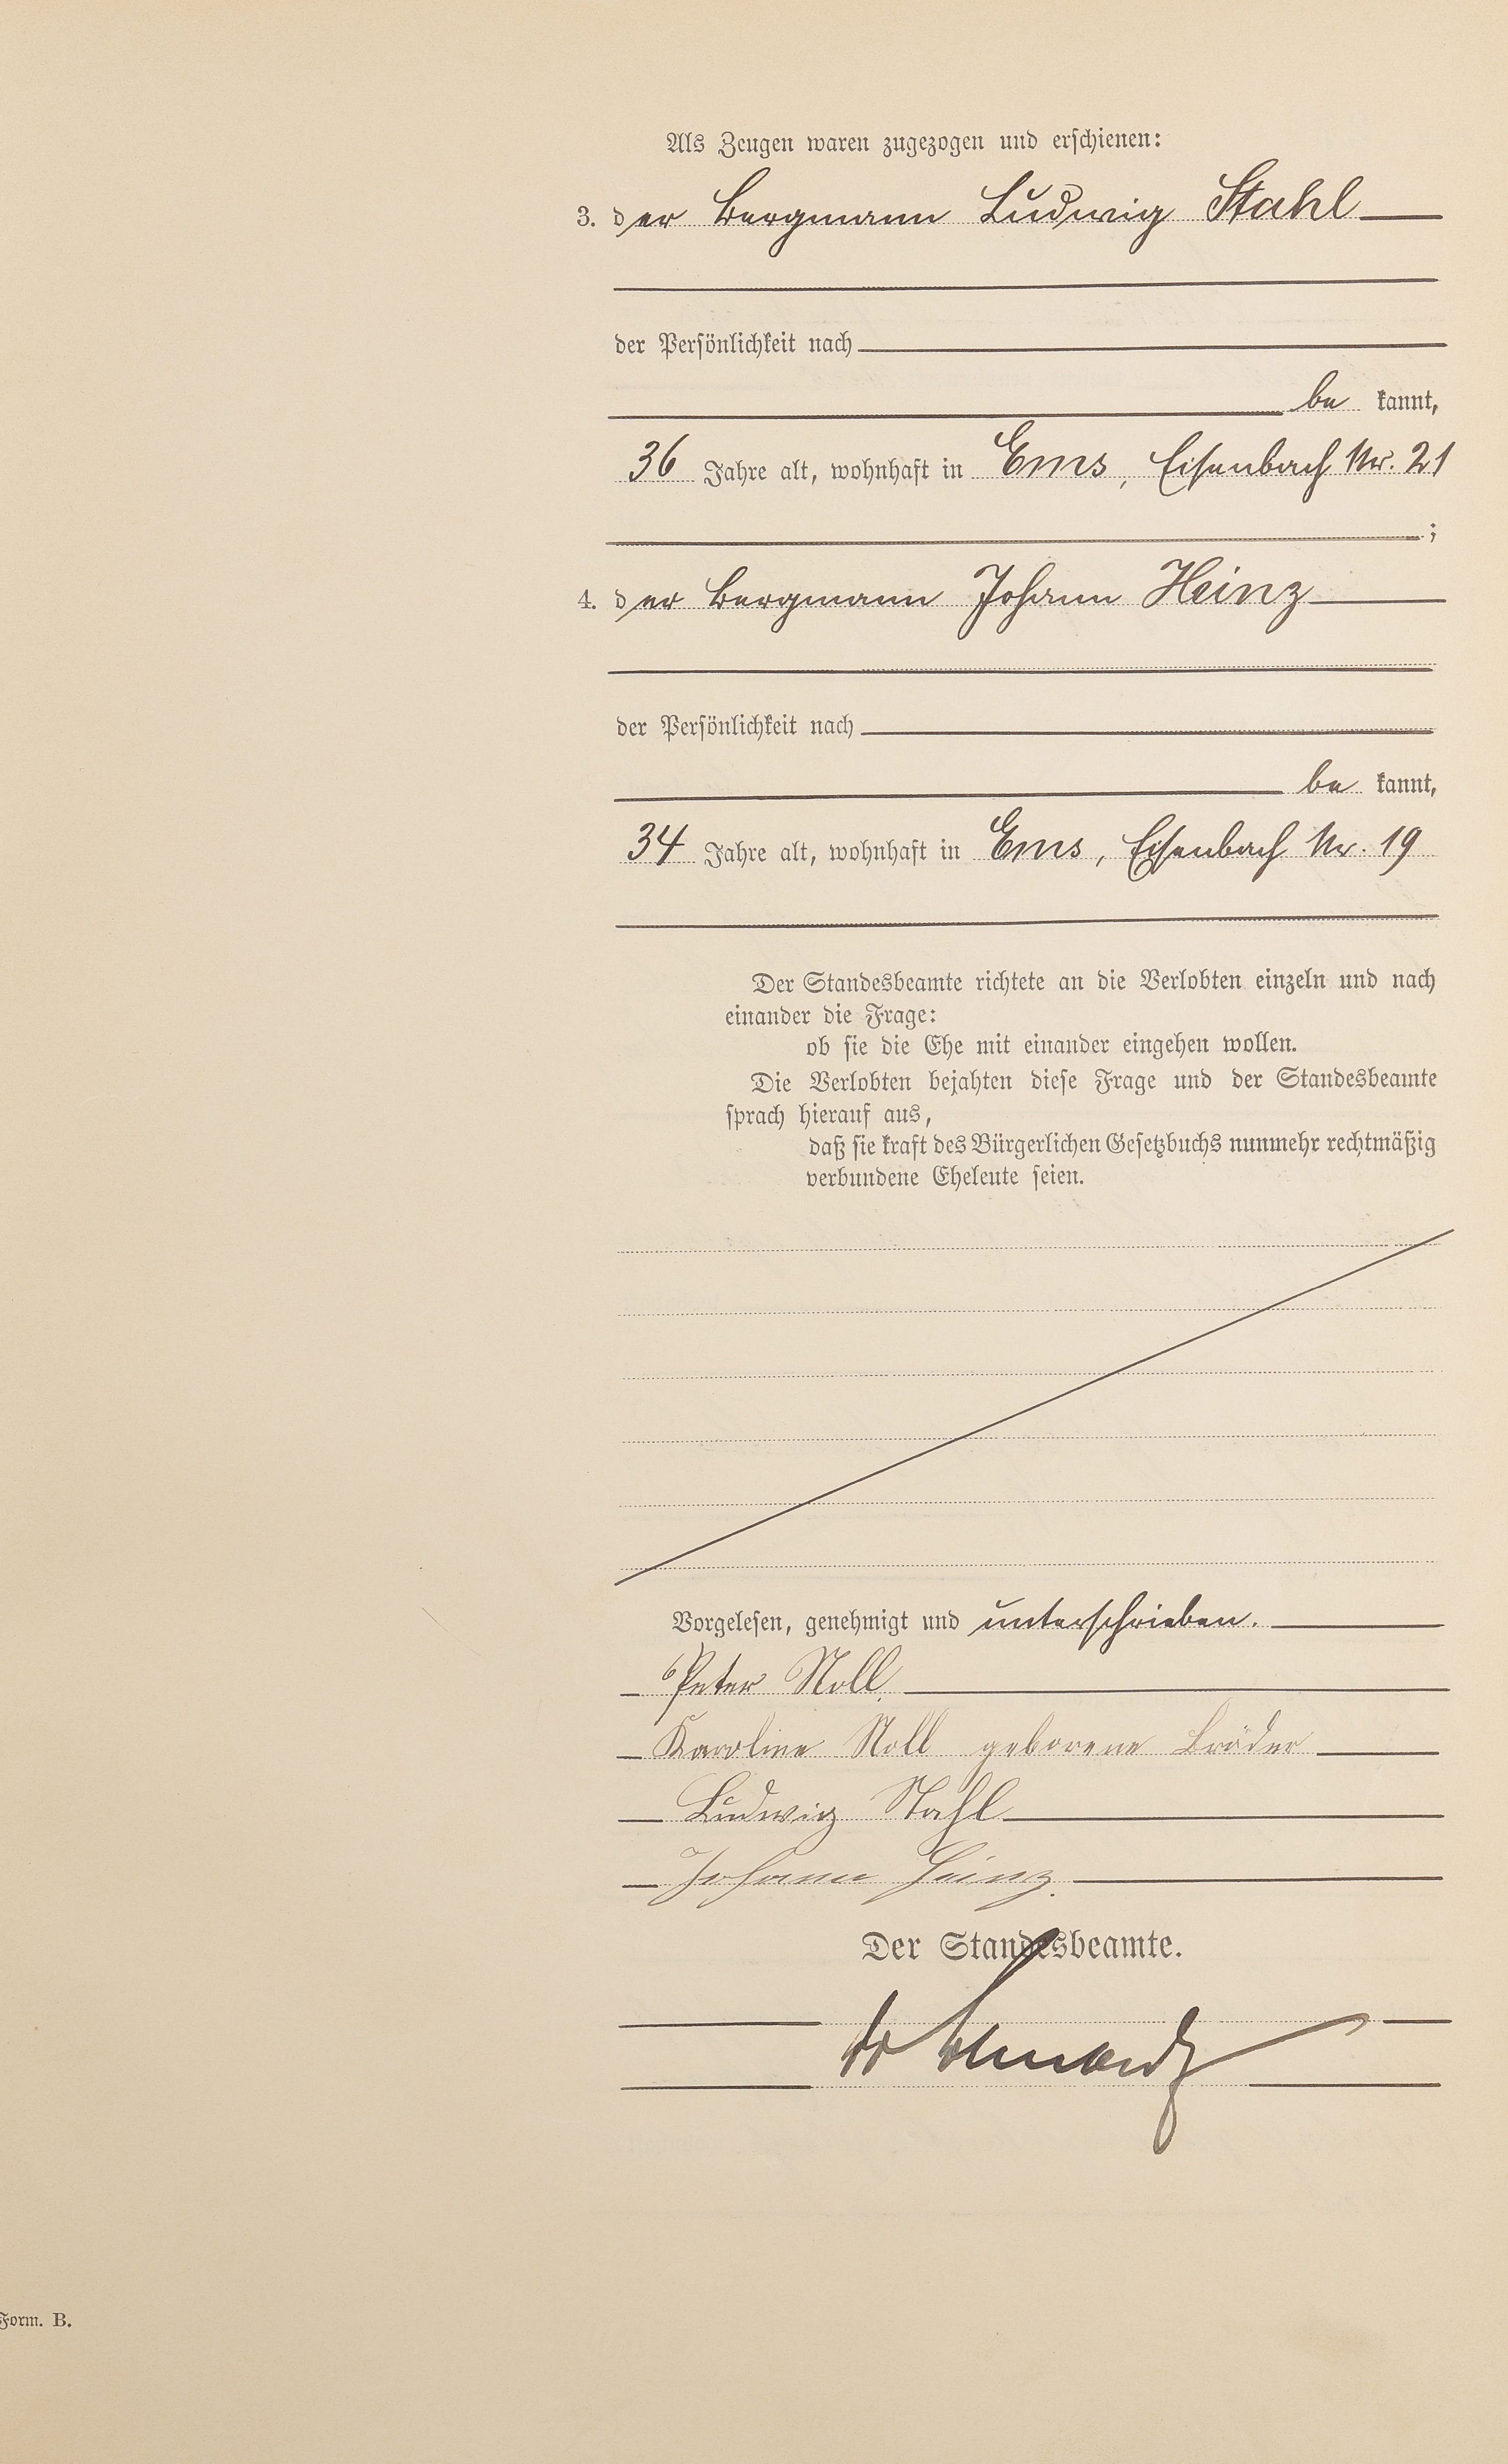 Als Zeugen waren zugezogen und erschienen:
3. der Bergmann Ludwig Stahl
der Persönlichkeit nach
be kannt,
36 Jahre alt, wohnhaft in Ems, Eisenbach Nr. 21
;
4. der Bergmann Johann Heinz
der Persönlichkeit nach
be kannt,
34 Jahre alt, wohnhaft in Ems, Eisenbach Nr. 19
Der Standesbeamte richtete an die Verlobten einzeln und nach
einander die Frage:
ob sie die Ehe mit einander eingehen wollen.
Die Verlobten bejahten diese Frage und der Standesbeamte
sprach hierauf aus,
daß sie kraft des Bürgerlichen Gesetzbuchs nunmehr rechtmäßig
verbundene Eheleute seien.
Vorgelesen, genehmigt und unterschrieben.
Peter Noll.
Karoline Noll geborene Bröder
Ludwig Stahl
Johann Heinz.
Der Standesbeamte.
Form. B.